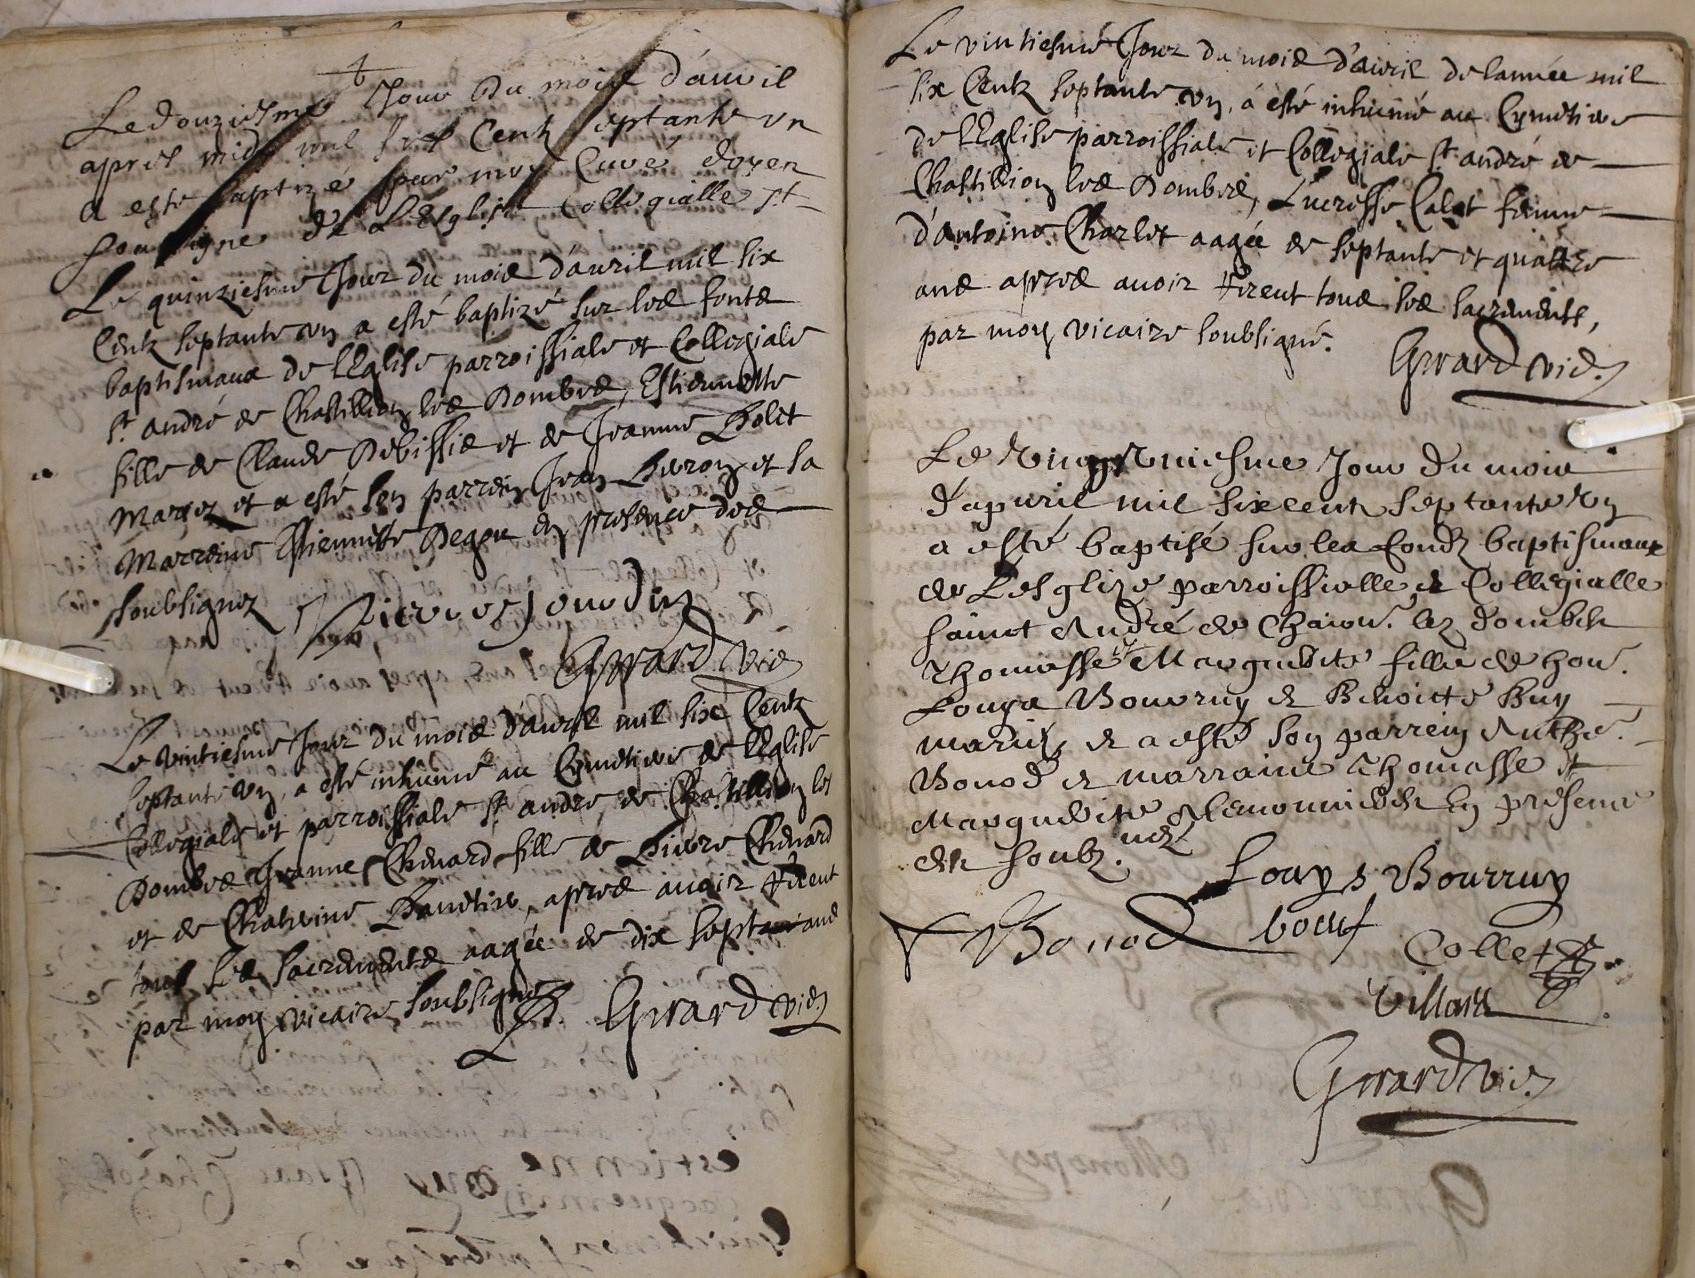 Le douziesme Jour du mois d'auril
apres midy mil six Centz septante un
a este baptizé par moy Curé doyen
soubsigne de L'Esglise Collegialle st
Le quinziesme Jour du mois d'auril mil six
Centz septante un a esté baptizé sur les fontz
baptismaux de l'Eglise parroissiale et Collegiale
st. andré de Chastillion les Dombes, Estiennette
fille de Claude Debissie et de Jeanne Bolet
Mariez et a esté son parrein Jean et sa
Marreine Estiennette Degou en presence des
soubsignez Pierre Jonodin
Girard vic.
Le vintiesme Jour du mois d'auril mil six Centz
septante un, a esté inhumé au Cymetiere de l'Eglise
Collegiale et parroissiale st. andré de Chastillion les
Dombes Jeanne Chenard fille de Pierre Chenard
et de Chaterine, apres auoir receut
tous les sacrements aagée de dix sept ans
par moy vicaire soubsigné. Girard vic.
Le vintiesme Jour du mois d'auril de l'année mil
six Centz septante un, a esté inhumé au Cymetiere
de l'Eglise parroissiale et Collegiale st. andré de
Chastillion les Dombes, Lucresse Calet femme
d'Antoine Charlet aagée de septante et quattre
ans apres auoir receut tous les sacrements,
par moy vicaire soubsigné.
Girard vic.
Le Vingt Uniesme Jour du mois
d'apuril mil six cent septante un
a esté baptisé sur les fondz baptismaux
de L'esglize parroissialle et Collegialle
sainct André de Chaion. lez Dombes
Thomasse Marguerite fille de hon.
Louys Bourruy et Benoitte Buy
mariés et a esté son parrein Anthe.
Bonod et marraine Thomasse et
Marguerite en presence
des soubz.nez
Louys Bourruy
Bonod boeuf
Collet
Villars
Girard vic.